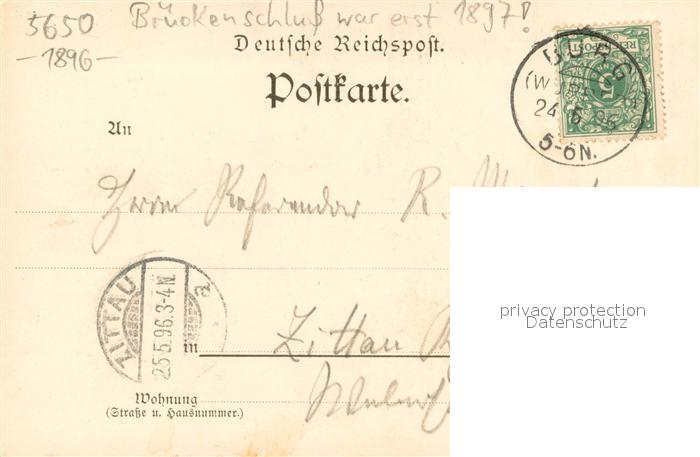 5650 Brückenschluß war erst 1897!
-1896-
Deutsche Reichspost.
Postkarte.
BURG
24 5 96
5-6N.
An
Herrn Referendar R.
ZITTAU
25.5.96.3-4N.
a
in Zittau
Wohnung
(Straße u. Hausnummer.)
privacy protection
Datenschutz